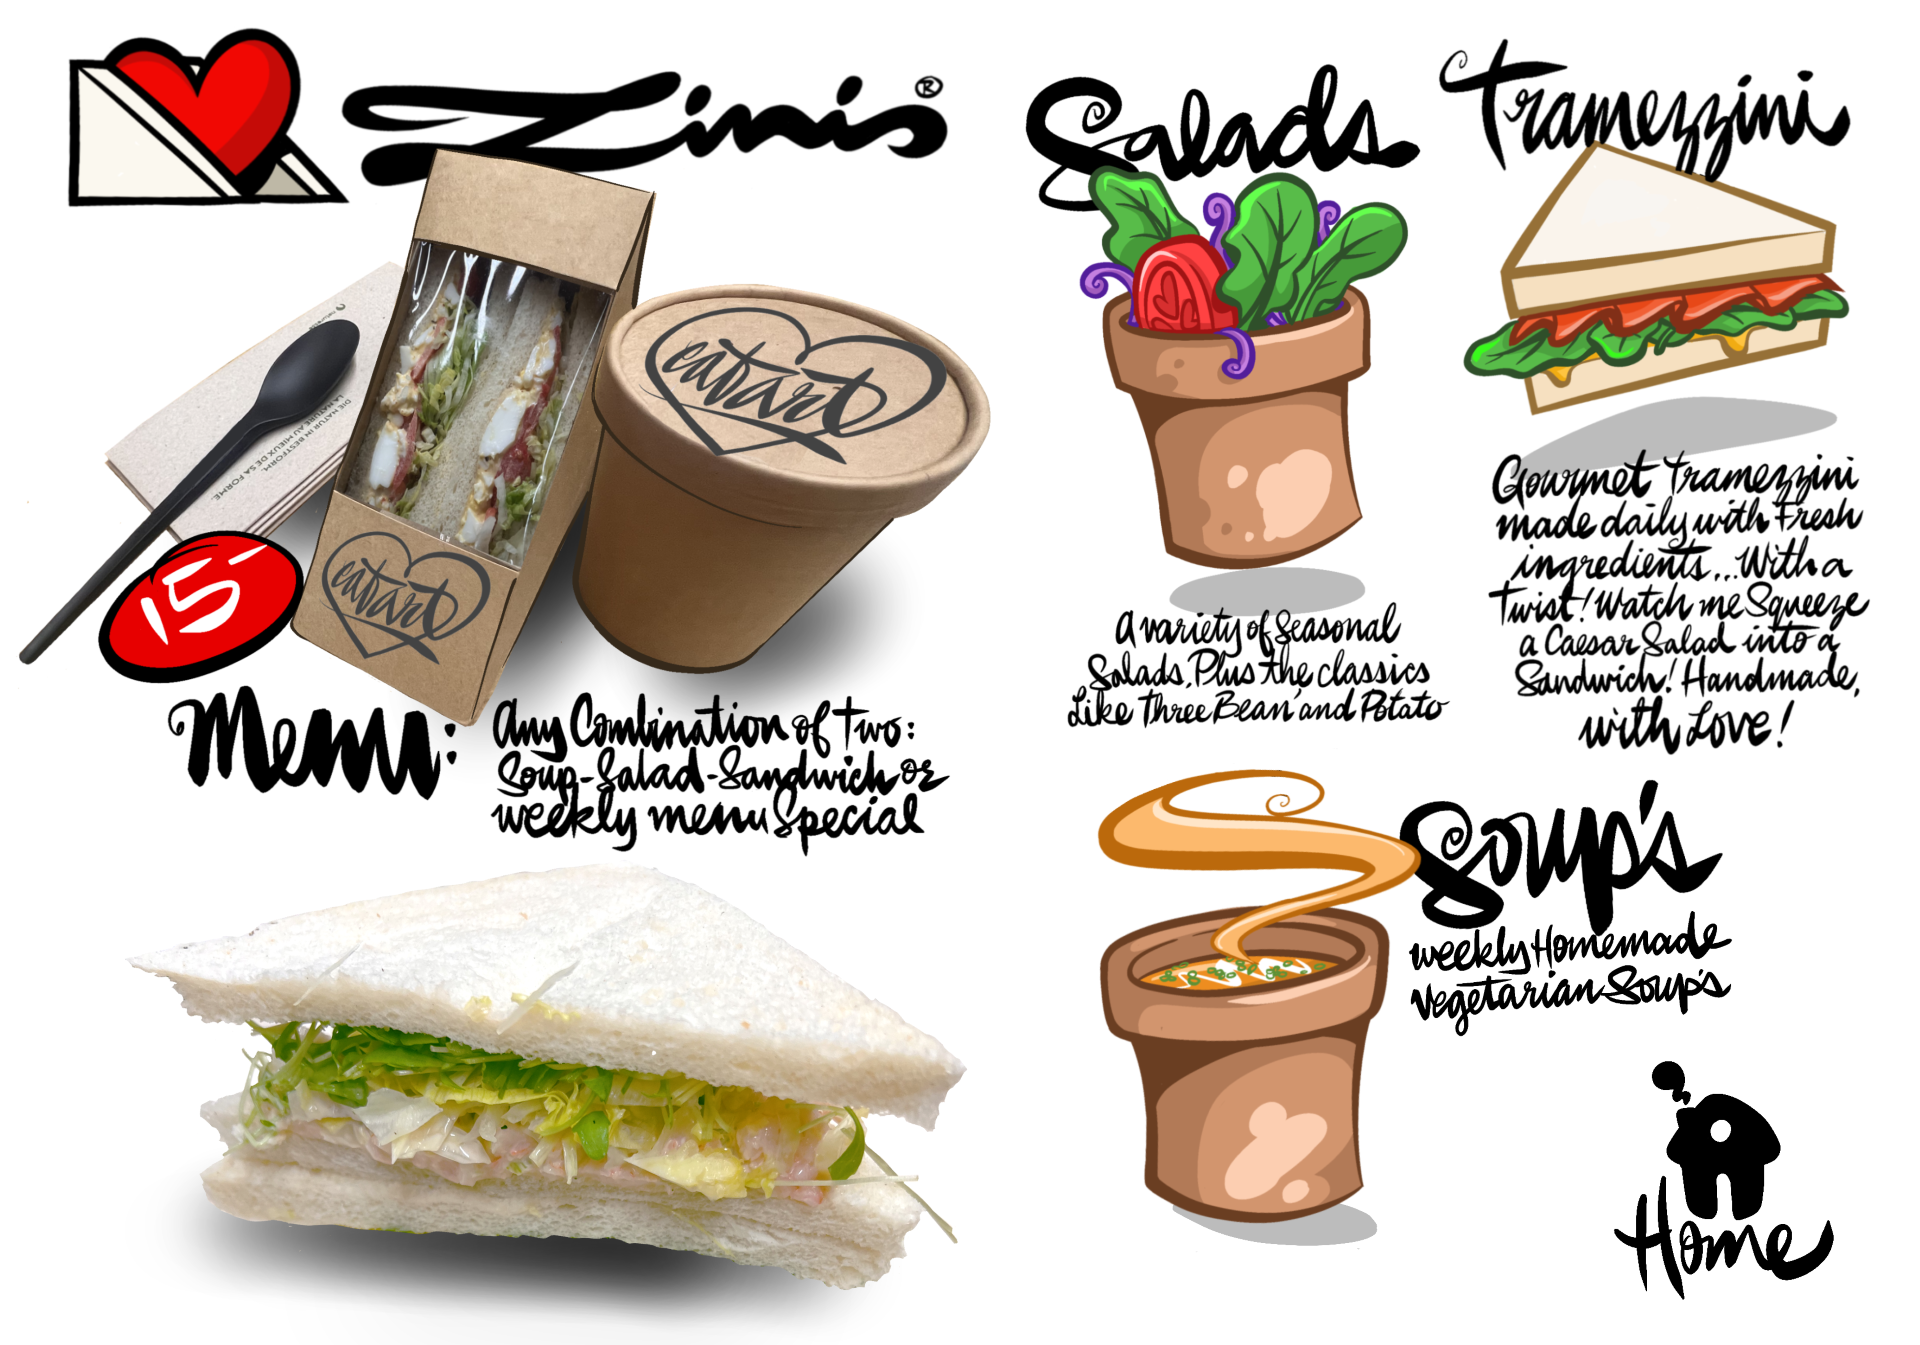 Zinis®
eat art
naturesse
DIE NATUR IN BESTFORM.
LA NATURE AU MIEUX DE SA FORME.
eat art
15-
Menu:
Any Combination of Two:
Soup-Salad-Sandwich or
weekly menu Special
Salads
A variety of Seasonal
Salads. Plus the classics
Like Three Bean and Potato
Tramezzini
Gourmet Tramezzini
made daily with Fresh
ingredients...With a
Twist! Watch me Squeeze
a Caesar Salad into a
Sandwich! Handmade,
with Love!
Soup's
weekly Homemade
Vegetarian Soup's
Home